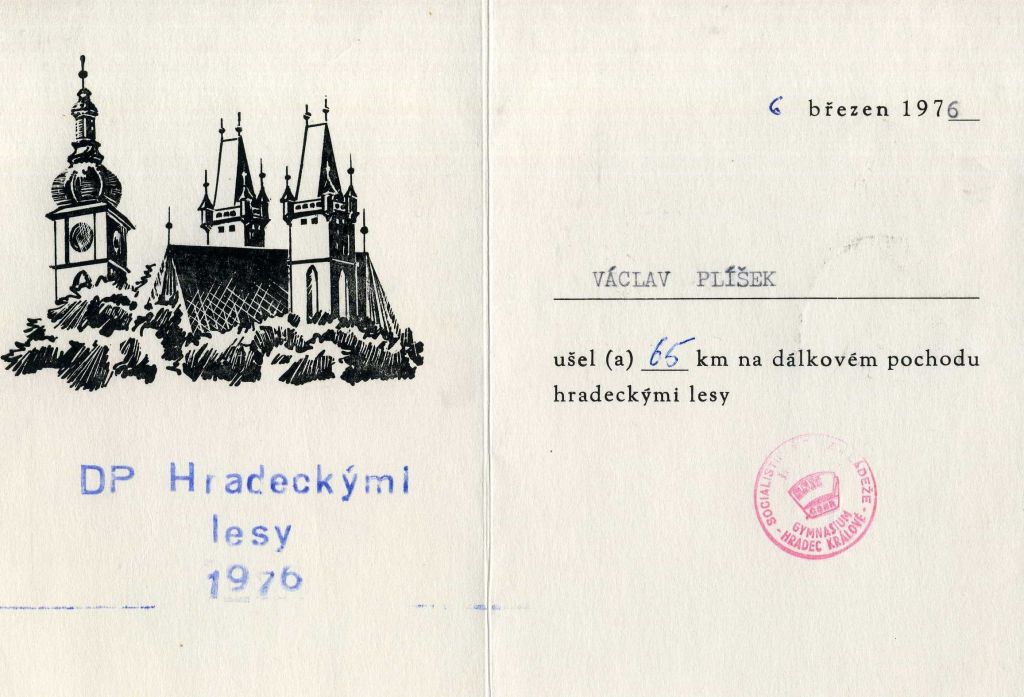 DP Hradeckými
lesy
1976
6 březen 1976
VÁCLAV PLÍŠEK
ušel (a) 65 km na dálkovém pochodu
hradeckými lesy
GYMNASIUM
- HRADEC KRÁLOVÉ -